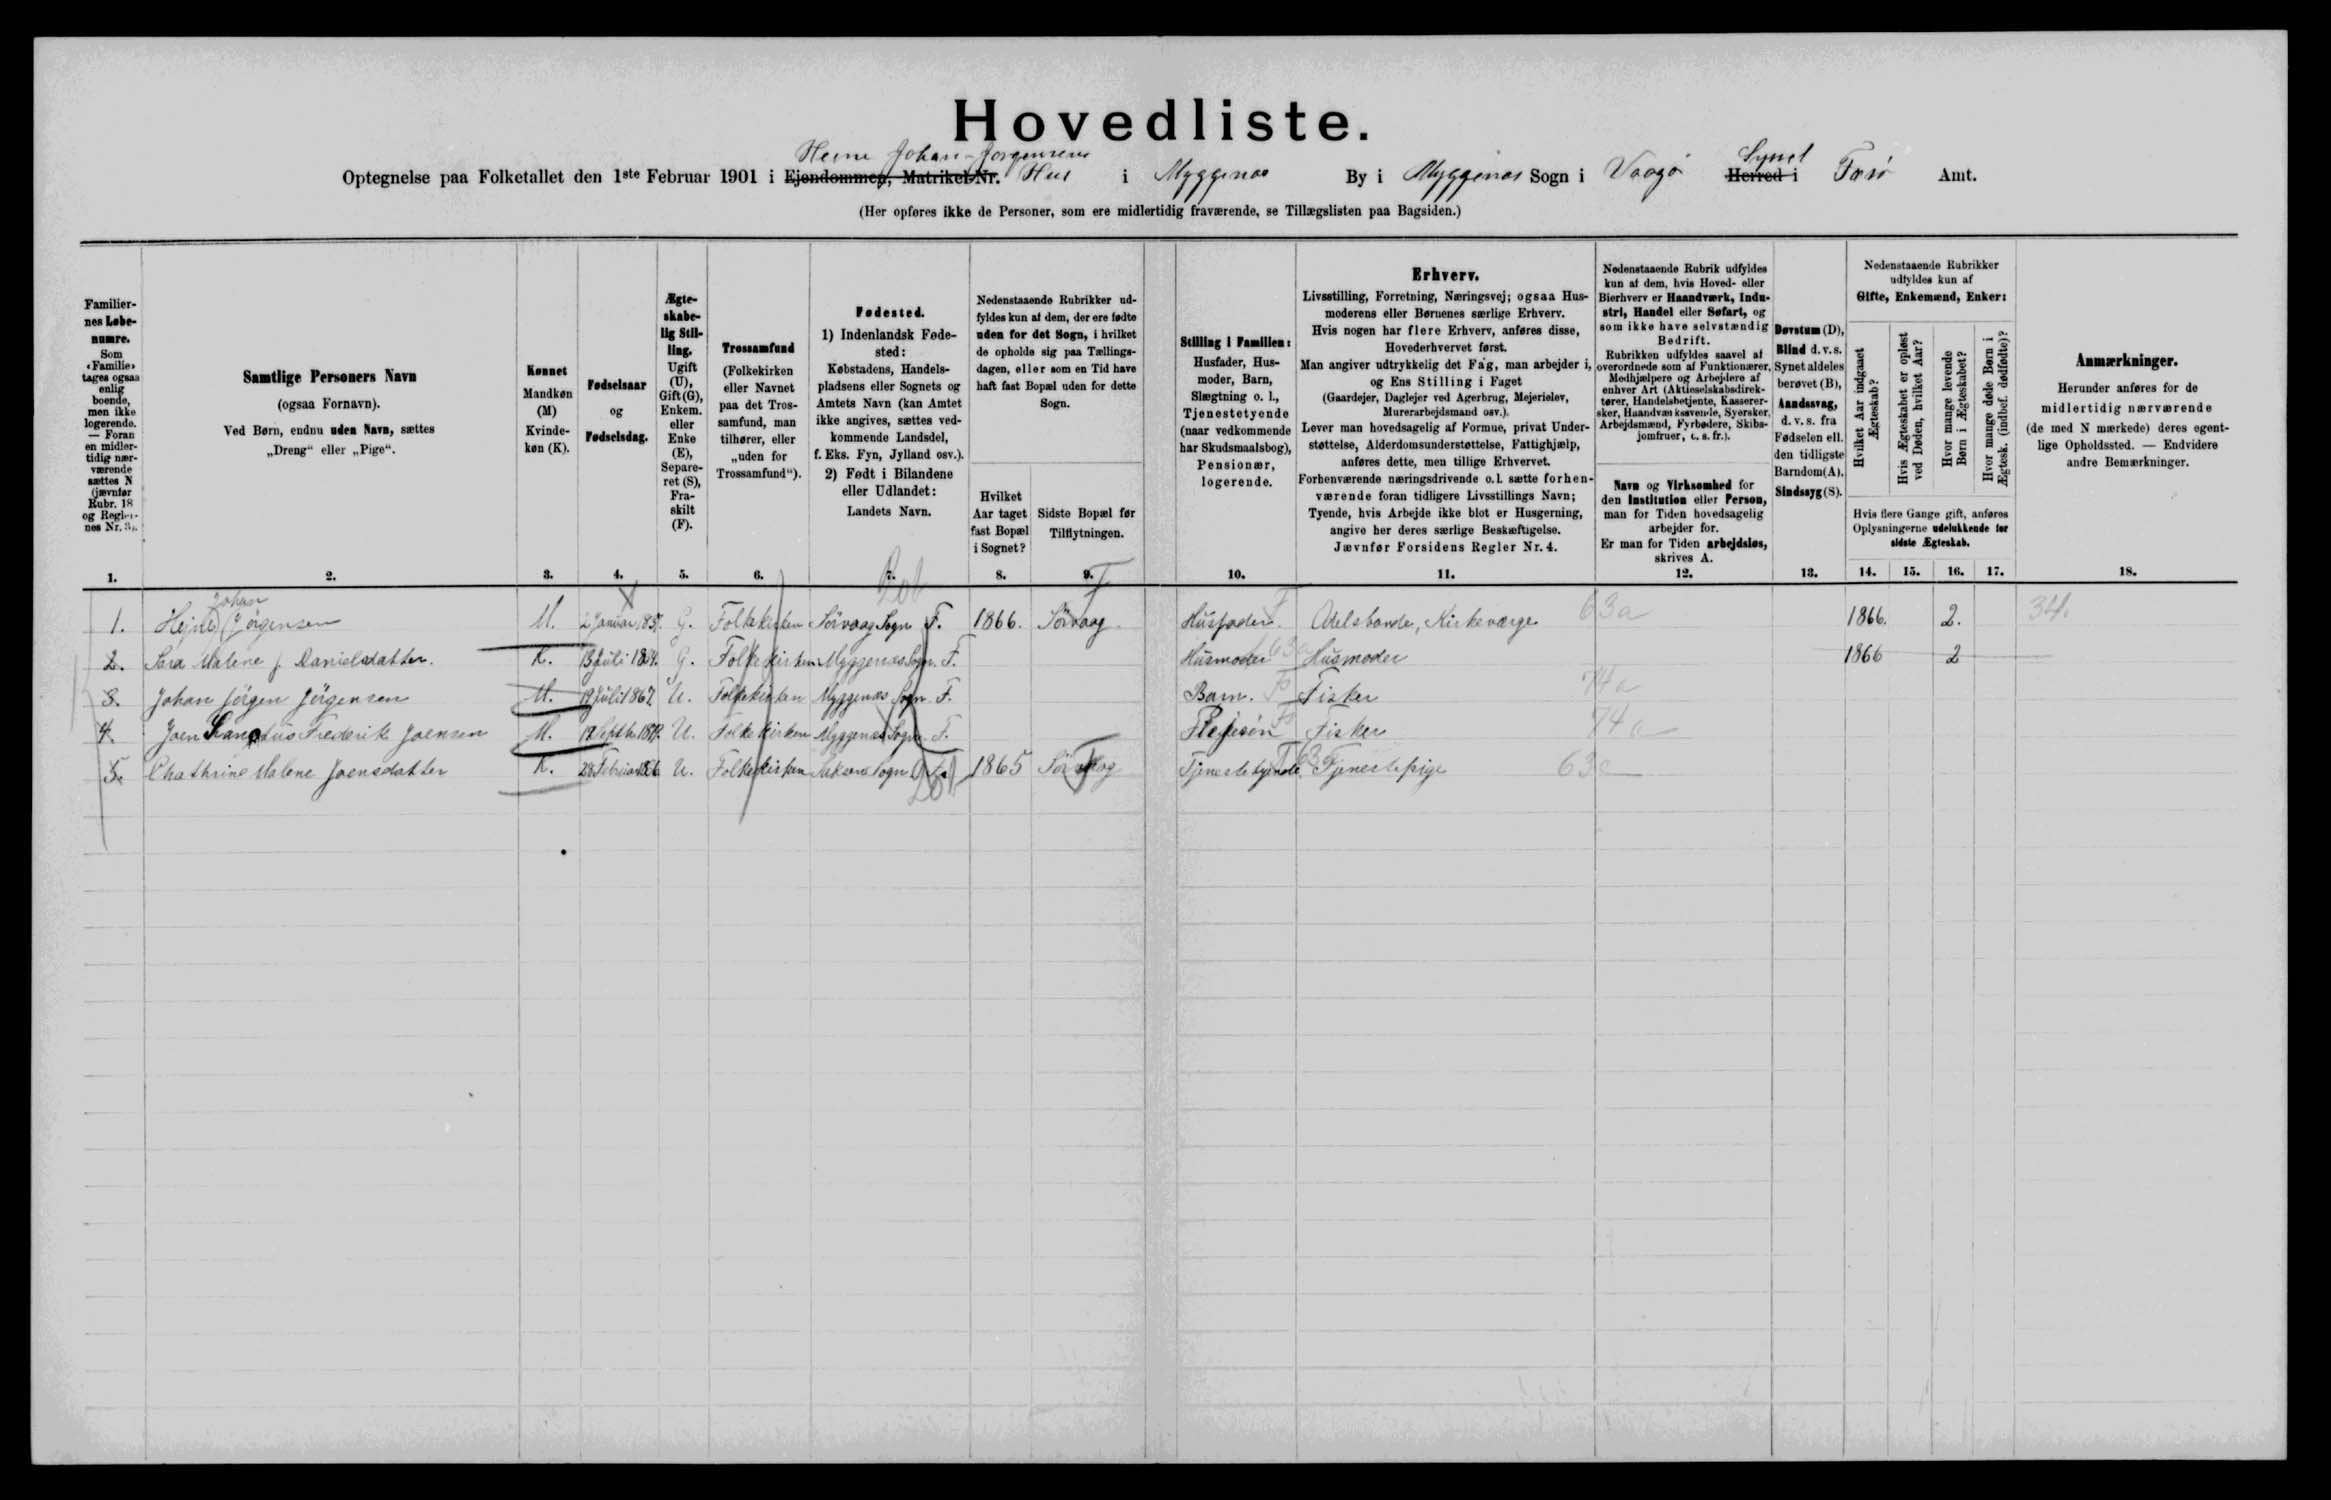 Hovedliste.
Heine Johan Jörgensens
Optegnelse paa Folketallet den 1ste Februar 1901 i Ejendommen, Matrikel-Nr. Hus i Myggenæs By i Myggenæs Sogn i Vaagø Syssel Herred i Færø Amt.
(Her opføres ikke de Personer, som ere midlertidig fraværende, se Tillægslisten paa Bagsiden.)
Familiernes Løbenumre.
Som «Familie» tages ogsaa enlig boende, men ikke logerende. — Foran en midlertidig nærværende sættes N (jævnfør Rubr. 18 og Reglernes Nr. 3).
Samtlige Personers Navn
(ogsaa Fornavn).
Ved Børn, endnu uden Navn, sættes
„Dreng“ eller „Pige“.
Kønnet
Mandkøn
(M)
Kvinde-
køn (K).
Fødselsaar
og
Fødselsdag.
Ægte-
skabe-
lig Stil-
ling.
Ugift
(U),
Gift (G),
Enkem.
eller
Enke
(E),
Separe-
ret (S),
Fra-
skilt
(F).
Trossamfund
(Folkekirken
eller Navnet
paa det Tros-
samfund, man
tilhører, eller
„uden for
Trossamfund“).
Fødested.
1) Indenlandsk Føde-
sted:
Købstadens, Handels-
pladsens eller Sognets og
Amtets Navn (kan Amtet
ikke angives, sættes ved-
kommende Landsdel,
f. Eks. Fyn, Jylland osv.).
2) Født i Bilandene
eller Udlandet:
Landets Navn.
Nedenstaaende Rubrikker ud-
fyldes kun af dem, der ere fødte
uden for det Sogn, i hvilket
de opholde sig paa Tællings-
dagen, eller som en Tid have
haft fast Bopæl uden for dette
Sogn.
Hvilket
Aar taget
fast Bopæl
i Sognet?
Sidste Bopæl før
Tilflytningen.
Stilling i Familien:
Husfader, Hus-
moder, Barn,
Slægtning o. l.,
Tjenestetyende
(naar vedkommende
har Skudsmaalsbog),
Pensionær,
logerende.
Erhverv.
Livsstilling, Forretning, Næringsvej; ogsaa Hus-
moderens eller Børnenes særlige Erhverv.
Hvis nogen har flere Erhverv, anføres disse,
Hovederhvervet først.
Man angiver udtrykkelig det Fag, man arbejder i,
og Ens Stilling i Faget
(Gaardejer, Daglejer ved Agerbrug, Mejerielev,
Murerarbejdsmand osv.).
Lever man hovedsagelig af Formue, privat Under-
støttelse, Alderdomsunderstøttelse, Fattighjælp,
anføres dette, men tillige Erhvervet.
Forhenværende næringsdrivende o. l. sætte forhen-
værende foran tidligere Livsstillings Navn;
Tyende, hvis Arbejde ikke blot er Husgerning,
angive her deres særlige Beskæftigelse.
Jævnfør Forsidens Regler Nr. 4.
Nedenstaaende Rubrik udfyldes
kun af dem, hvis Hoved- eller
Bierhverv er Haandværk, Indu-
stri, Handel eller Søfart, og
som ikke have selvstændig
Bedrift.
Rubrikken udfyldes saavel af
overordnede som af Funktionærer,
Medhjælpere og Arbejdere af
enhver Art (Aktieselskabsdirek-
tører, Handelsbetjente, Kasserer-
sker, Haandværkssvende, Syersker,
Arbejdsmænd, Fyrbødere, Skibs-
jomfruer, o. s. fr.).
Navn og Virksomhed for
den Institution eller Person,
man for Tiden hovedsagelig
arbejder for.
Er man for Tiden arbejdsløs,
skrives A.
Døvstum (D),
Blind d. v. s.
Synet aldeles
berøvet (B),
Aandssvag,
d. v. s. fra
Fødselen ell.
den tidligste
Barndom (A),
Sindssyg (S).
Nedenstaaende Rubrikker
udfyldes kun af
Gifte, Enkemænd, Enker:
Hvilket Aar indgaaet Ægteskab?
Hvis Ægteskabet er opløst ved Døden, hvilket Aar?
Hvor mange levende Børn i Ægteskabet?
Hvor mange døde Børn i Ægtesk. (indbef. dødfødte)?
Hvis flere Gange gift, anføres
Oplysningerne udelukkende for
sidste Ægteskab.
Anmærkninger.
Herunder anføres for de
midlertidig nærværende
(de med N mærkede) deres egent-
lige Opholdssted. — Endvidere
andre Bemærkninger.
1. 2. 3. 4. 5. 6. 7. 8. 9. 10. 11. 12. 13. 14. 15. 16. 17. 18.
Johan
1. Hejne Jörgensen M. 2 Januar 1837. G. Folkekirken Sörvaag Sogn F. 1866. Sörvaag. Husfader. F Odelsbonde, Kirkeværge 63a 1866. 2. 34.
2. Sara Malene f. Danielsdatter. K. G. Folkekirken Myggenæs Sogn. F. Husmoder 63a Husmoder 1866 2
3. Johan Jörgen Jörgensen M. 19 Juli 1867. U. Folkekirken Myggenæs Sogn. F. Barn. Fisker 74a
4. Joen Frederik Joensen M. U. Folkekirken Myggenæs Sogn. F. Plejesön Fisker 74a
5. Chathrine Malene Joensdatter K. U. Folkekirken Saksens Sogn F. 1865 Sörvaag Tjenestetyende Tjenestepige 63a